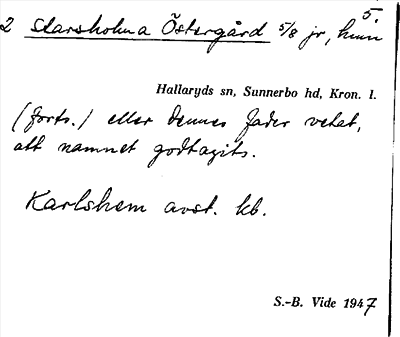 5.
2 Starsholma Östergård 5/8 jr, hmn
Hallaryds sn, Sunnerbo hd, Kron. l.
(forts.) eller dennes fader vetat,
att namnet godtagits.
Karlshem avst. kb.
S.-B. Vide 1947